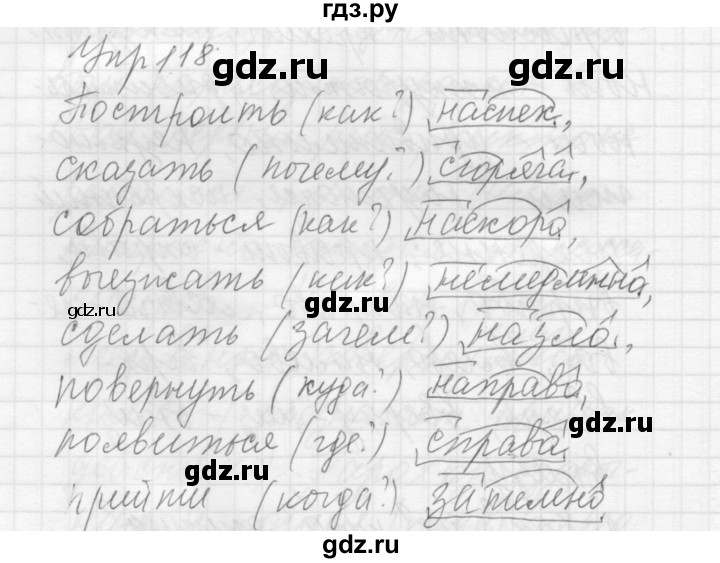 гдз.ру
Упр 118.
gdz.ru gdz.ru
Построить (как?) наспех,
сказать (почему?) сгоряча,
gdz.ru gdz.ru
собраться (как?) наскоро,
выезжать (как?) немедленно,
gdz.ru gdz.ru
сделать (зачем?) назло,
повернуть (куда?) направо,
gdz.ru
появиться (где?) справа
gdz.ru
прийти (когда?) затемно
gdz.ru